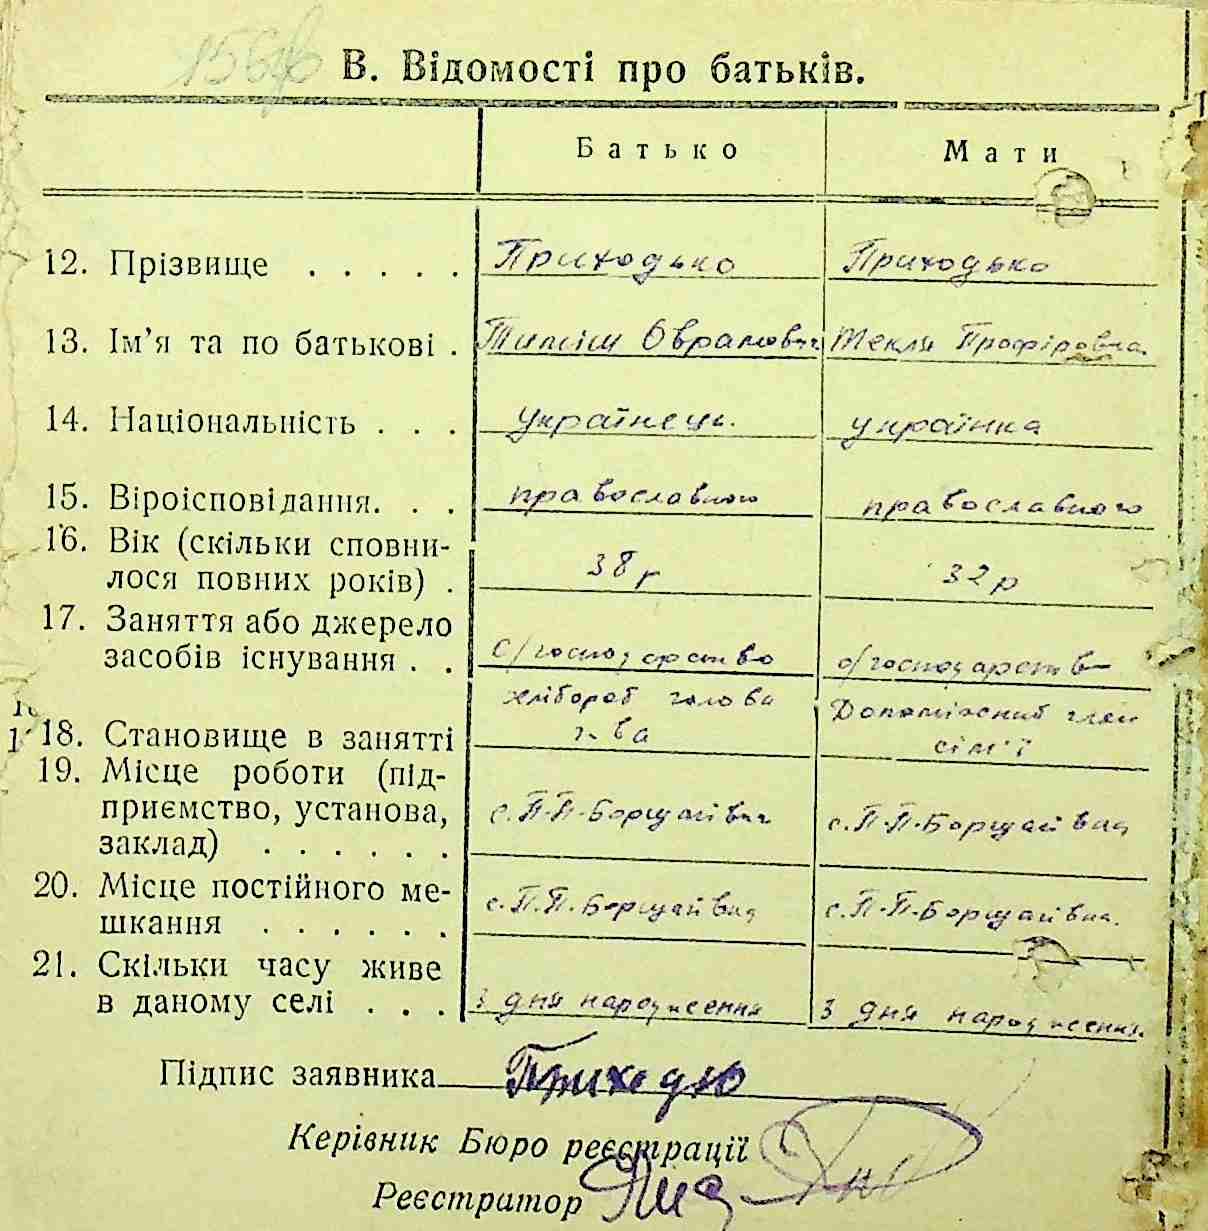 В. Відомості про батьків.
Батько Мати
12. Прізвище . . . . . Приходько Приходько
13. Ім'я та по батькові . Тиміш Оврамович Текля Профіровна
14. Національність . . . Українець. українка
15. Віроісповідання. . . православного православного
16. Вік (скільки сповни-
лося повних років) . 38 р 32 р
17. Заняття або джерело
засобів існування . . с/господарство с/господарств
хлібороб голова Допоміжний член
18. Становище в занятті г-ва сім'ї
19. Місце роботи (під-
приємство, установа, с. П-П-Борщагівка с. П-П-Борщагівка
заклад) . . . . . .
20. Місце постійного ме- с. П.П. Борщагівка с. П-П-Борщагівка.
шкання . . . . . .
21. Скільки часу живе
в даному селі . . . З дня народження З дня народження.
Підпис заявника Приходько
Керівник Бюро реєстрації
Реєстратор